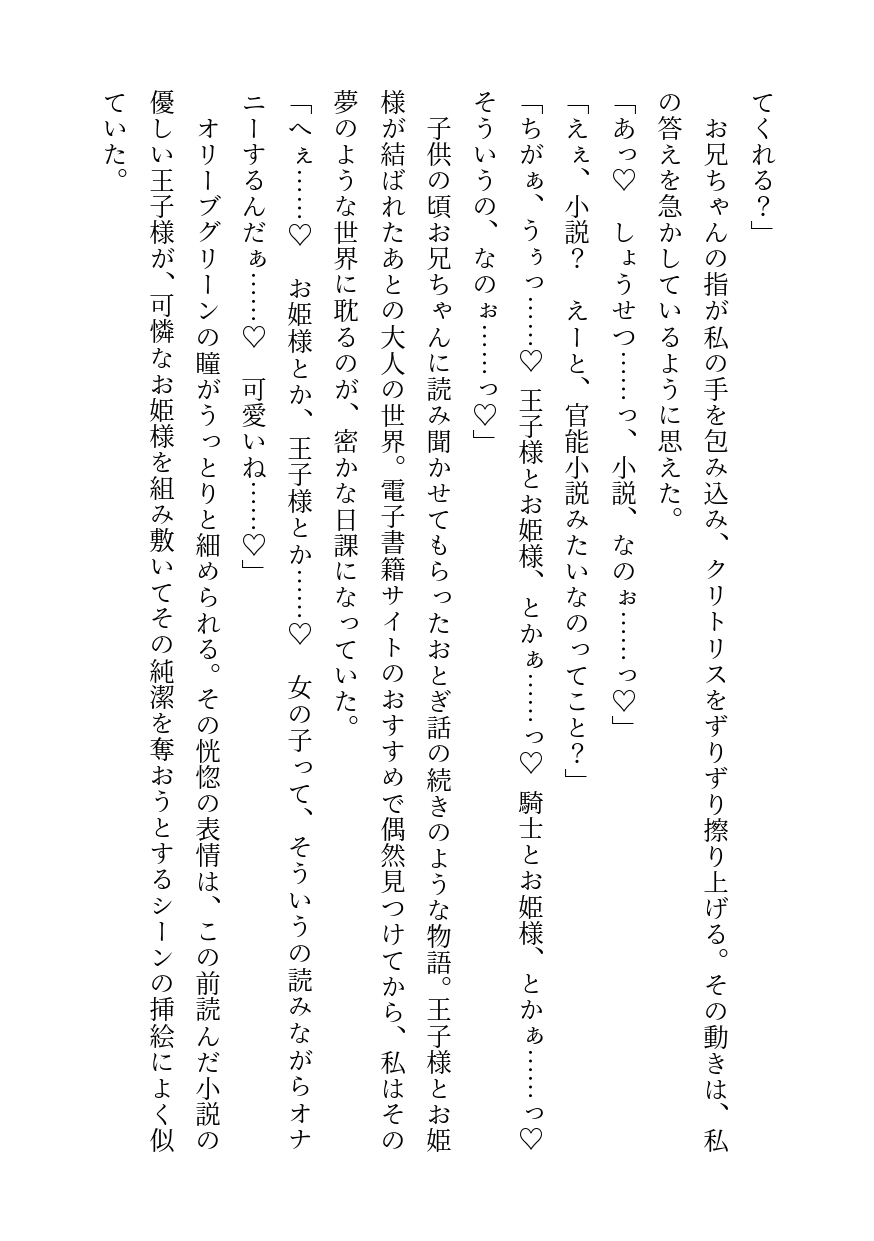 てくれる？」
　お兄ちゃんの指が私の手を包み込み、クリトリスをずりずり擦り上げる。その動きは、私
の答えを急かしているように思えた。
「あっ♡　しょうせつ……っ、小説、なのぉ……っ♡」
「えぇ、小説？　えーと、官能小説みたいなのってこと？」
「ちがぁ、うぅっ……♡ 王子様とお姫様、とかぁ……っ♡ 騎士とお姫様、とかぁ……っ♡
そういうの、なのぉ……っ♡」
　子供の頃お兄ちゃんに読み聞かせてもらったおとぎ話の続きのような物語。王子様とお姫
様が結ばれたあとの大人の世界。電子書籍サイトのおすすめで偶然見つけてから、私はその
夢のような世界に耽るのが、密かな日課になっていた。
「へぇ……♡　お姫様とか、王子様とか……♡　女の子って、そういうの読みながらオナ
ニーするんだぁ……♡　可愛いね……♡」
　オリーブグリーンの瞳がうっとりと細められる。その恍惚の表情は、この前読んだ小説の
優しい王子様が、可憐なお姫様を組み敷いてその純潔を奪おうとするシーンの挿絵によく似
ていた。